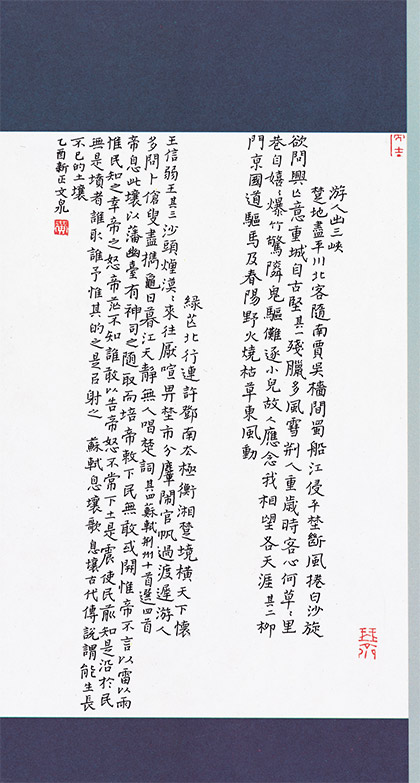 游人出三峽
楚地盡平川北客隨南賈吳檣間蜀船江侵平埜斷風捲白沙旋
欲問興亾意重城自古堅其一殘臘多風雪荊人重歲時客心何草〻里
巷自嬉〻爆竹驚隣鬼驅儺逐小兒故人應念我相望各天涯其二柳
門京國道驅馬及春陽野火燒枯草東風動
綠芒北行連許鄧南去極衡湘楚境橫天下懷
王信弱王其三沙頭煙漠〻來往厭喧卑埜市分麞鬧官帆過渡遲游人
多問卜傖叟盡攜龜日暮江天靜無人唱楚詞其四蘇軾荊州十首選四首
帝息此壤以藩幽臺有神司之隨取而培帝敕下民無敢或開惟帝不言以雷以雨
惟民知之幸帝之怒帝茫不知誰敢以告帝怒不常下土是震使民前知是沿於民
無是墳者誰取誰予惟其的之是以射之 蘇軾息壤歌 息壤古代傳說謂能生長
不已的土壤
乙酉新正文泉